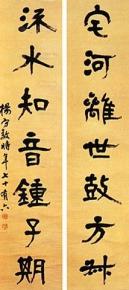 宅河離世鼓方叔
流水知音鍾子期
楊守敬時年七十有六